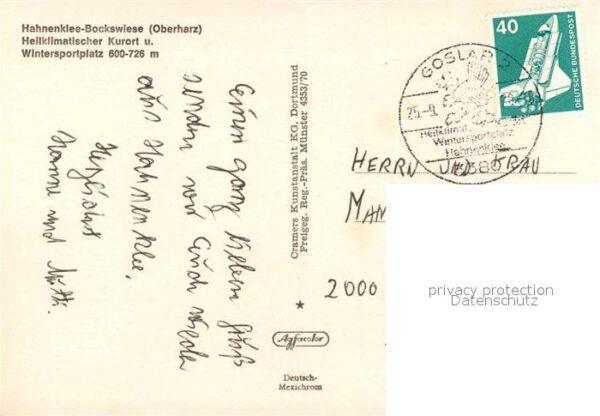 Hahnenklee-Bockswiese (Oberharz)
Heilklimatischer Kurort u.
Wintersportplatz 600-726 m
Einen ganz lieben Gruß
senden wir Euch
aus Hahnenklee.
Herzlichst
Hanne und
Cramers Kunstanstalt KG, Dortmund
Freigeg. Reg.-Präs. Münster 4353/70
Agfacolor
Deutsch-
Mexichrom
40
DEUTSCHE BUNDESPOST
GOSLAR 2
25.-9.
Heilklimat.
Wintersportplatz
Hahnenklee
HERRN UND FRAU
MAN
2000
privacy protection
Datenschutz